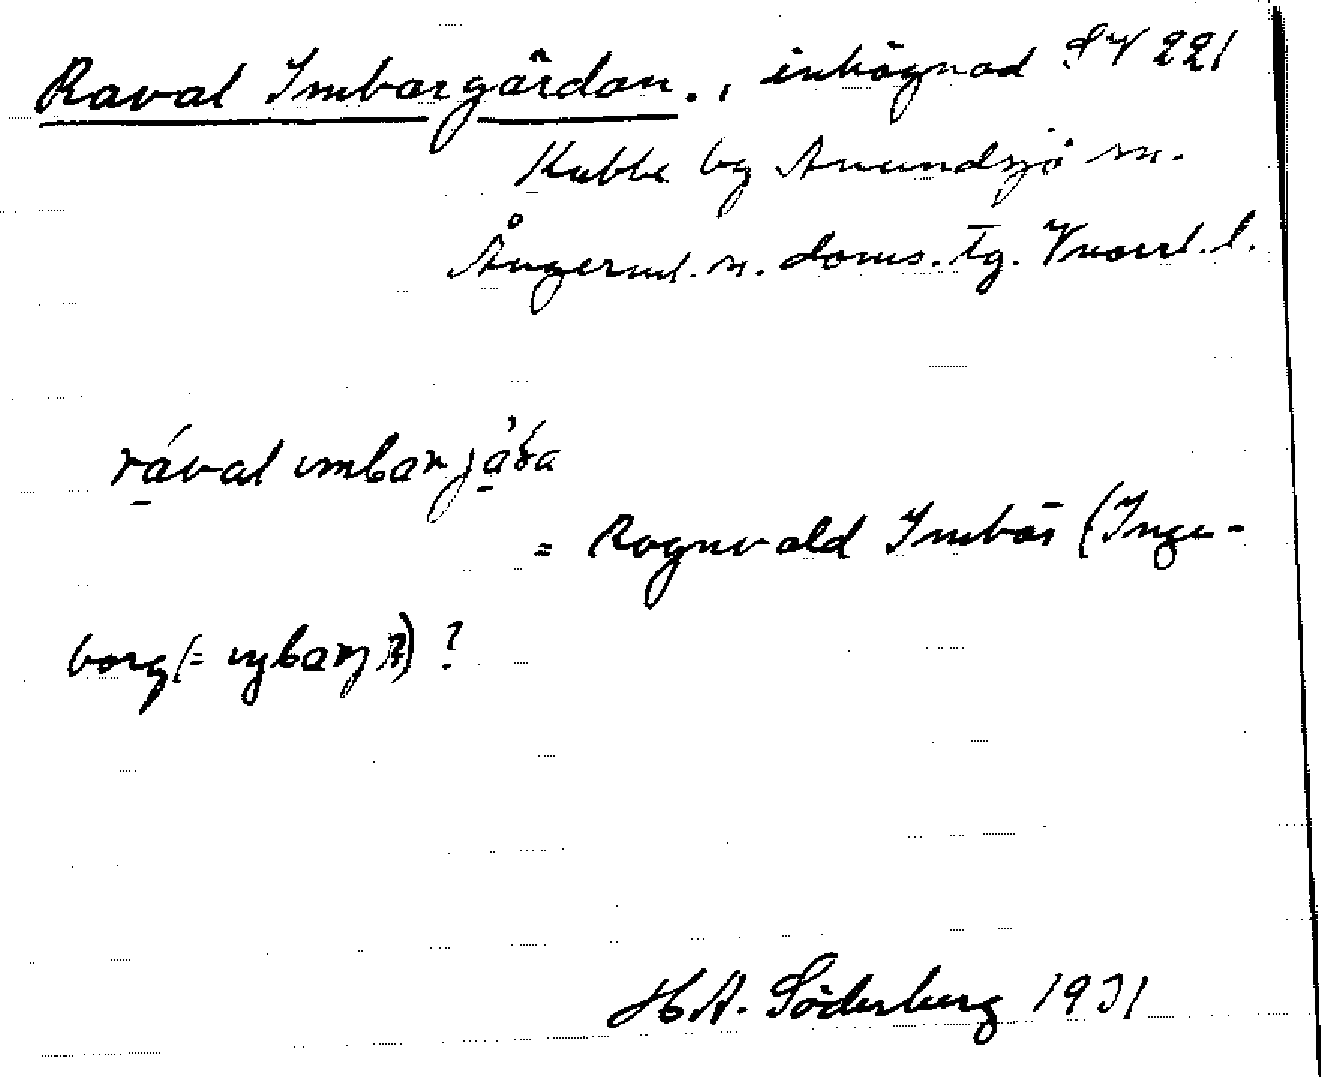 Raval Imbargårdan., inhägnad SV 221
Kubbe by Anundsjö sn.
Ångerml. n. doms. tg. Vnorrl. l.
= Rognvald Imbär (Inge-
borg (= ) ?
H A. Söderberg 1931